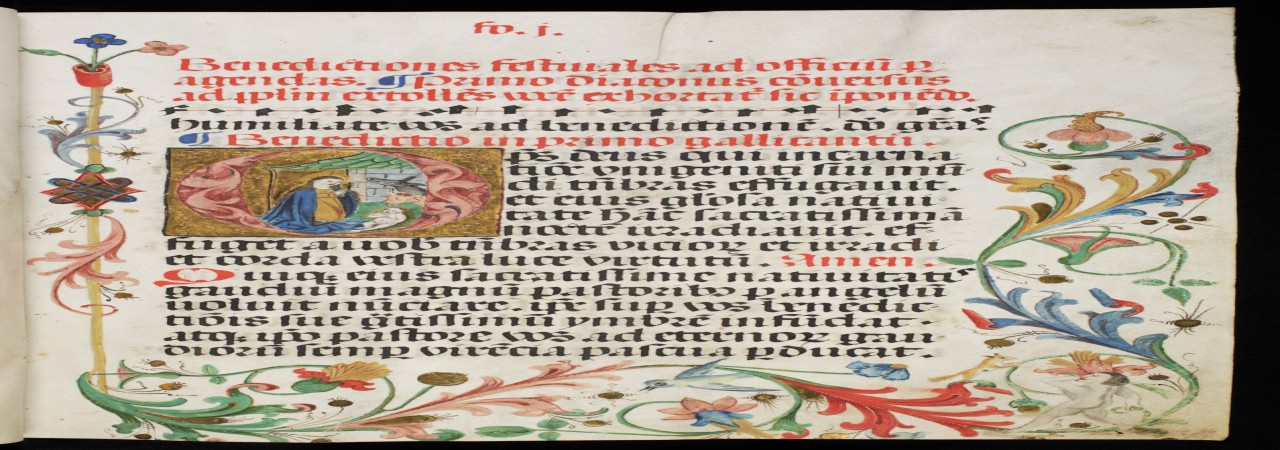 fo. j.
Benedictiones festiuales ad officiū p̱
agendas. ¶ Primo diaconus cōuersus
ad ꝓplm̄ extollēs vocē exhortat᷑ sic īponēdo.
humiliate vos ad benedictionē. do gr̄as
¶ Benedictio in primo gallicantu.
Ops deus qui incarna
tiōe vnigeniti sui mū
di tn̄bras effugauit.
et eius gl̓osa natiui
tate hāc sacratissimā
nocte irradiauit. ef
fuget a uob̓ tn̄bras vicioꝝ et irradi
et corda vestra luce virtutū. Amen.
Quiqꝫ eius sacratissime natiuitatis
gaudiū magnū pastoribꝰ p angelū
uoluit nūciare. ip̄e sup vos benedic
tiōis sue gr̄tissimū ymbrē infūdat.
atqꝫ ip̄o pastore vos ad eternoꝝ gau
dioru semp virēcia pascua pducat.